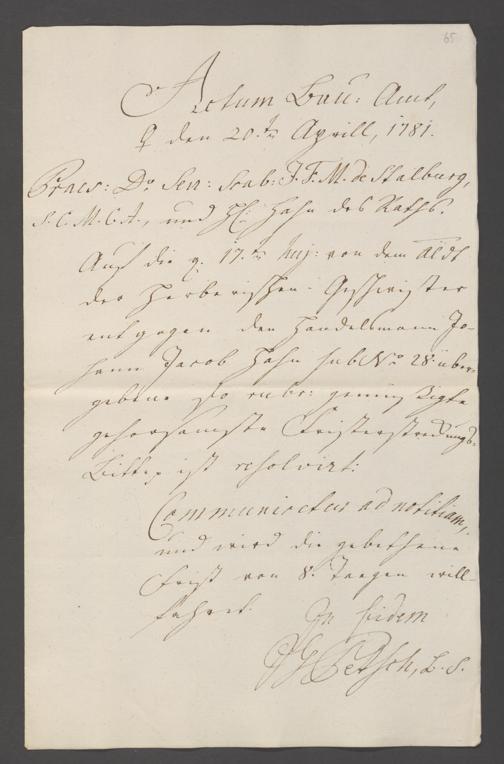 65
Actum Bau: Amt,
♀ den 20.ten Aprill, 1781.
Praes: Do. Sen: Scab: J. F. M. de Stalburg,
S. C. M. C. A., und H: Hahn des Raths.
Auf die q. 17.ten huj: von dem
der Herberischen Geschwister
entgegen den Handelsmann Jo-
hann Jacob Hahn sub No 28. über-
gebene so rubr:
gehorsamste Fristerstreckungs-
Bitte ist resolvirt:
Communicetur ad notitiam,
und wird die gebethene
Frist von 8. Taagen will-
fahret.
In fidem
Petsch, L. S.